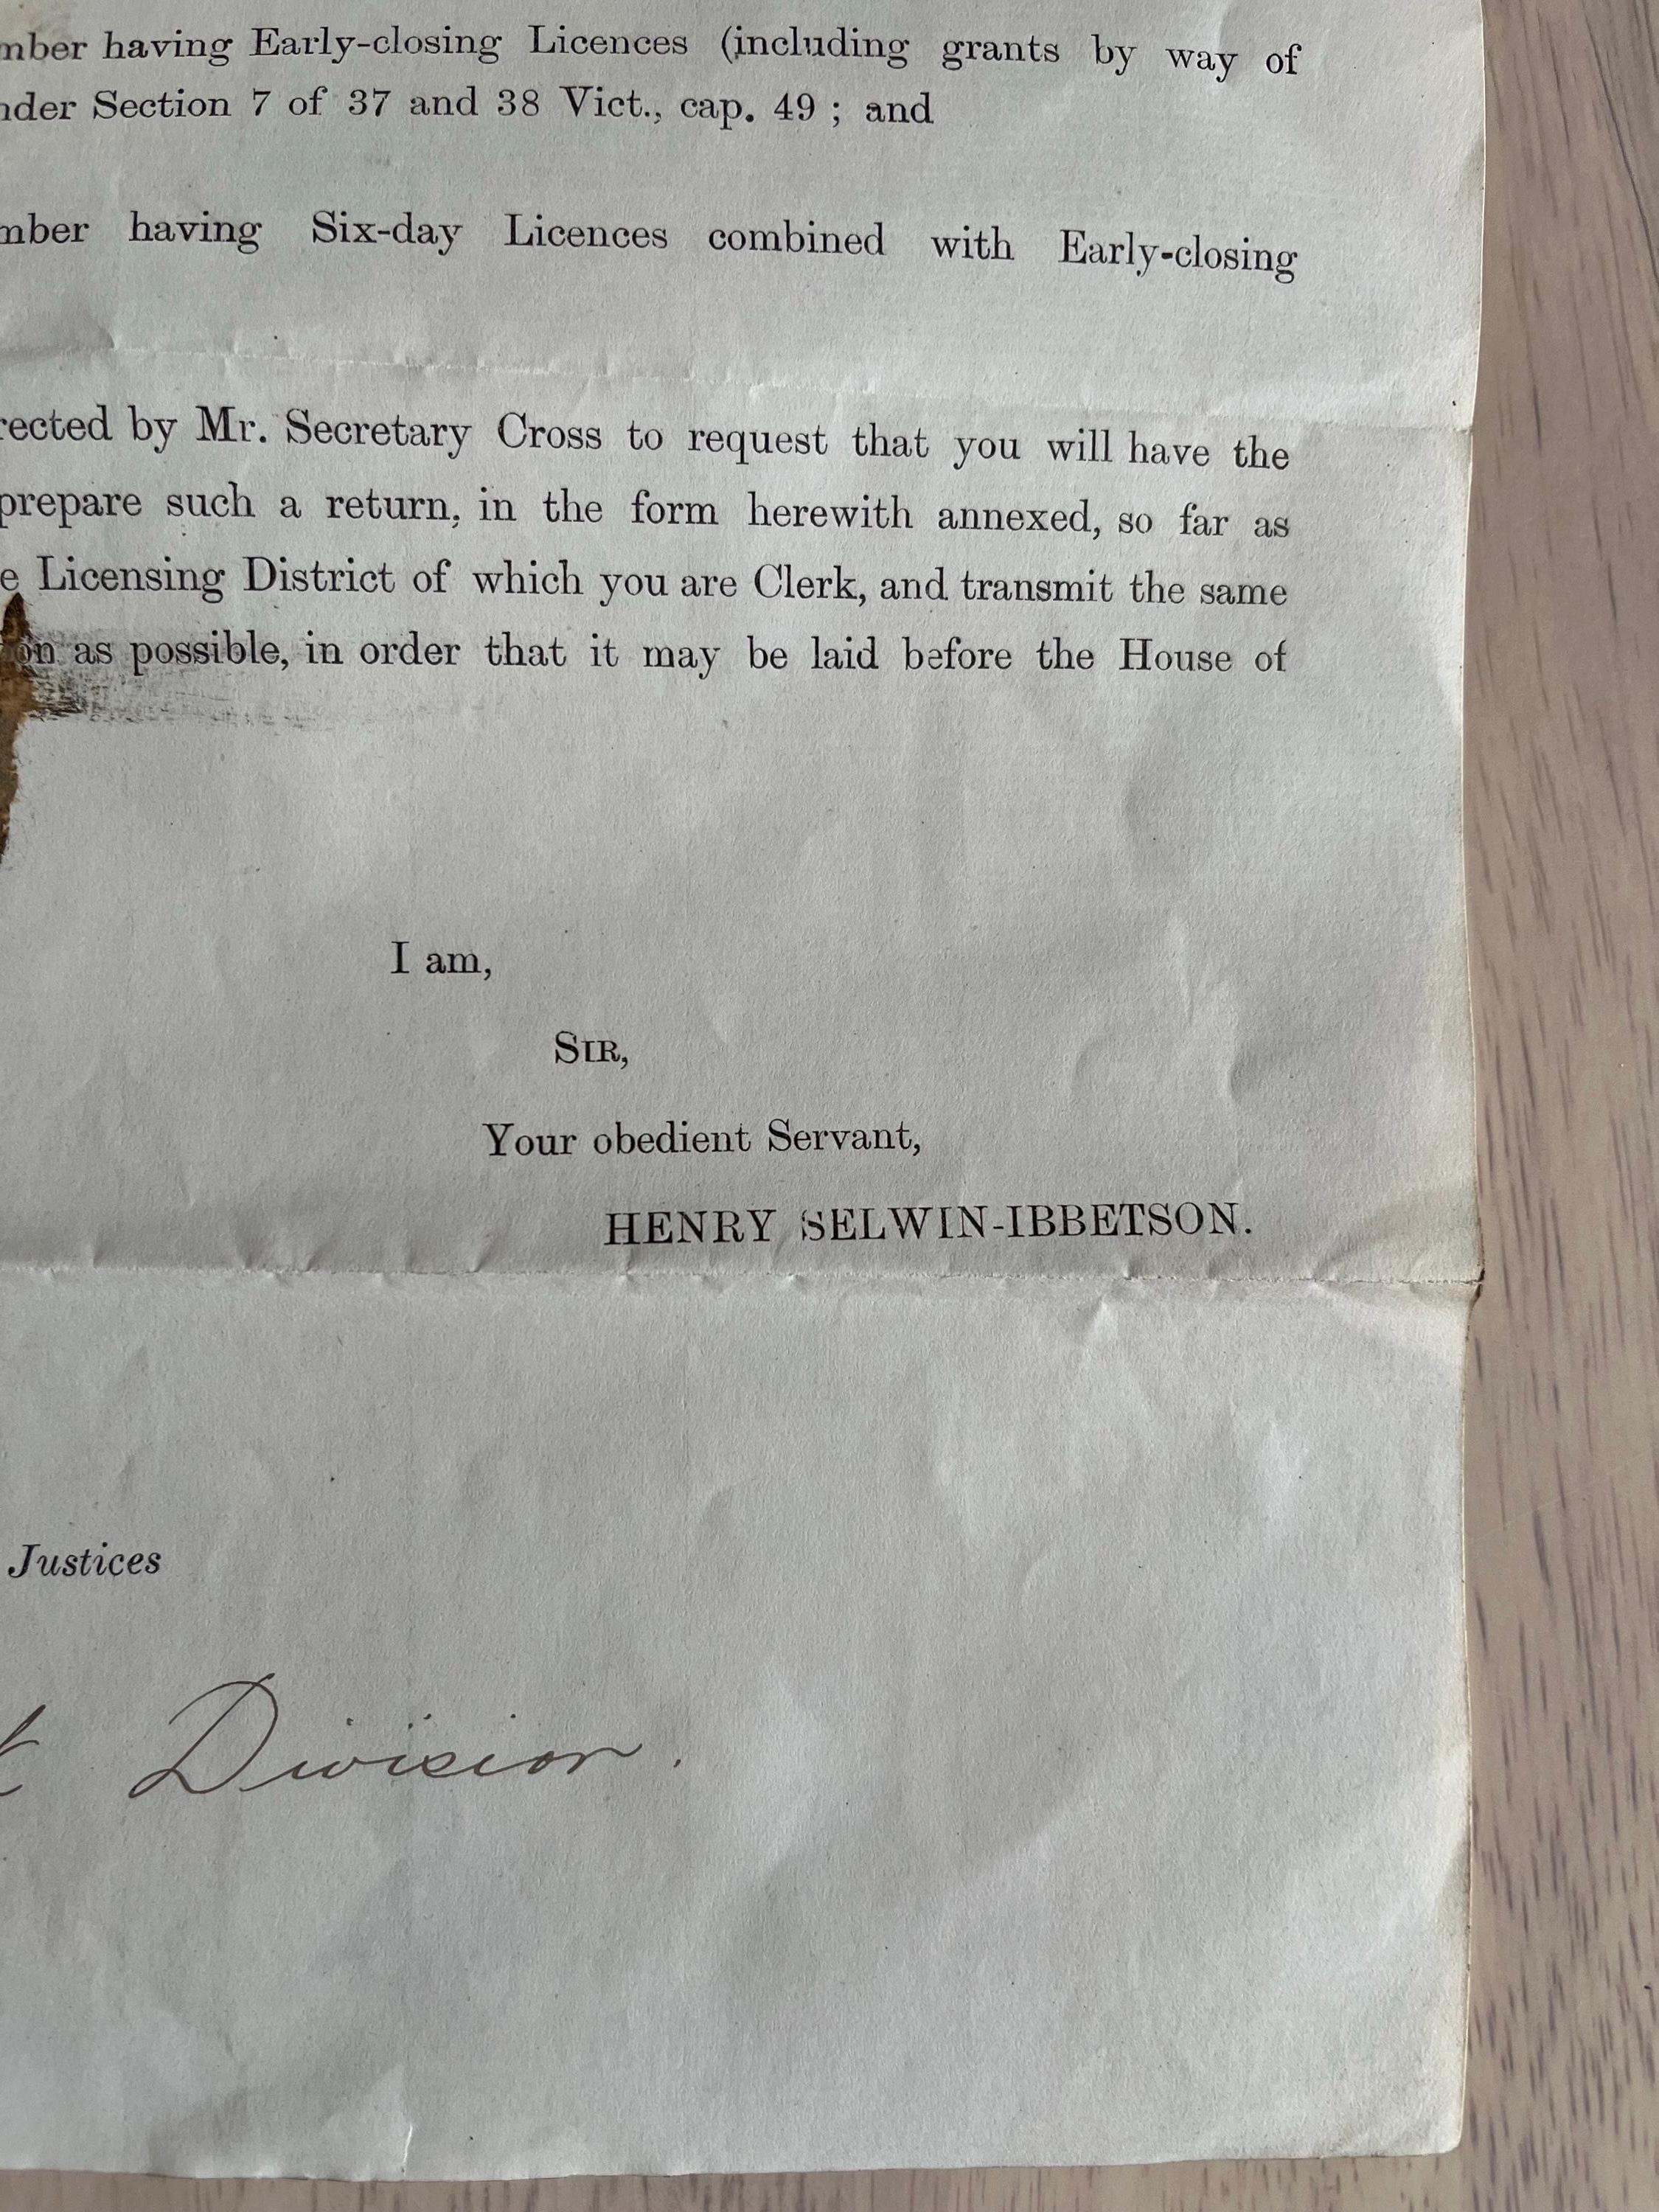 mber having Early-closing Licences (including grants by way of
nder Section 7 of 37 and 38 Vict., cap. 49 ; and
mber having Six-day Licences combined with Early-closing
rected by Mr. Secretary Cross to request that you will have the
prepare such a return, in the form herewith annexed, so far as
e Licensing District of which you are Clerk, and transmit the same
on as possible, in order that it may be laid before the House of
I am,
SIR,
Your obedient Servant,
HENRY SELWIN-IBBETSON.
Justices
t Division.